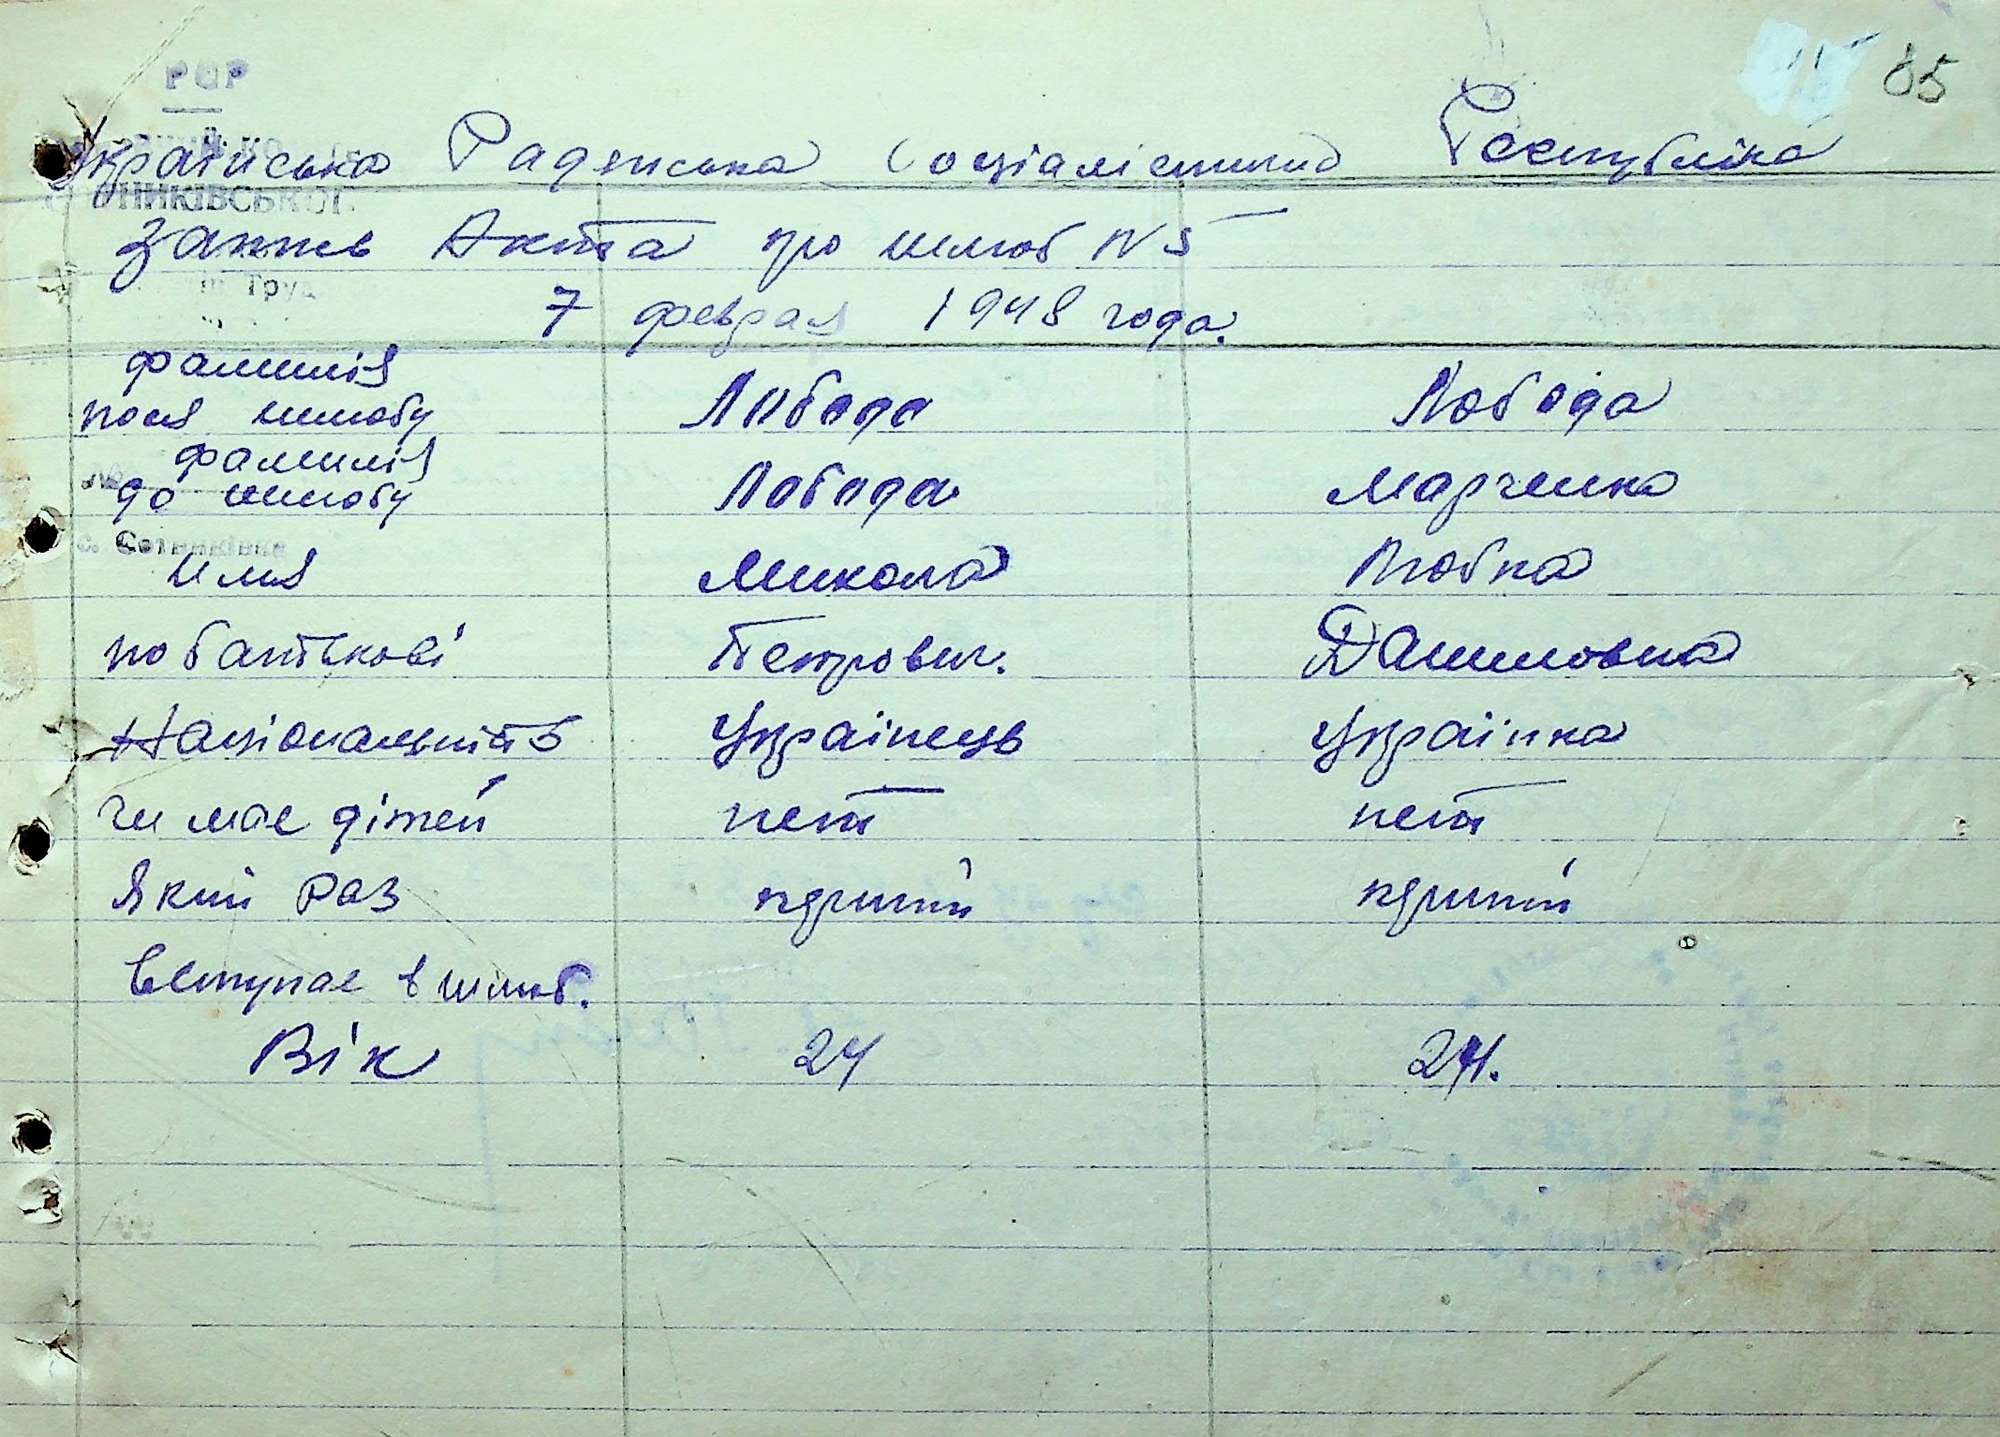 85
РСР
Українська Радянська Соціалістична Республіка
НИКІВСЬКОЇ
Запис Акта про шлюб N 5
7 феврал 1948 года.
фамилія
посля шлюбу Лобода Лобода
фамилія
до шлюбу Лобода Марченко
с. Сотниківка
Имя Микола Любка
по батькові Петрович. Даниловна
Національність Українець Українка
чи має дітей нет нет
Який раз перший перший
вступає в шлюб.
Вік 24 24.